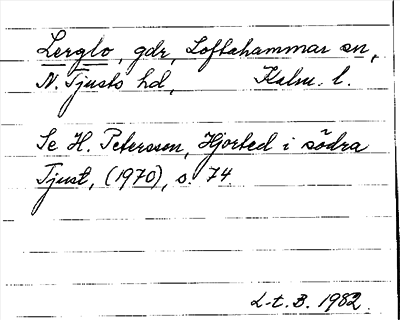 Lerglo, gdr, Loftahammar sn,
N. Tjusts hd, Kalm. l.
Se H. Petersson, Hjorted i södra
Tjust, (1970), s. 74
L-t. B. 1982.